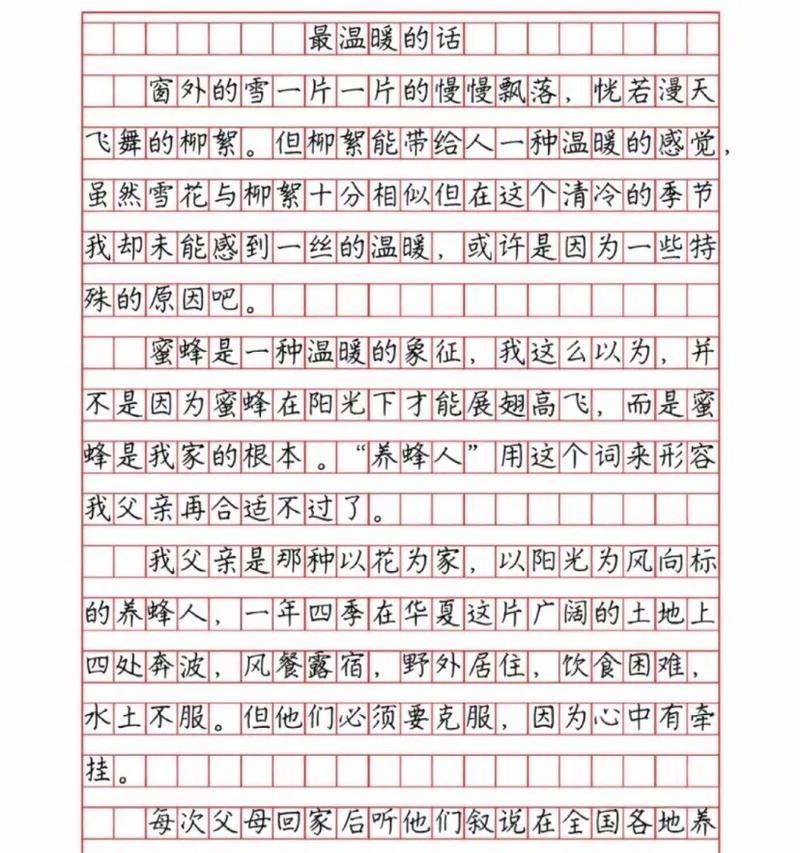 最温暖的话
窗外的雪一片一片的慢慢飘落，恍若漫天
飞舞的柳絮。但柳絮能带给人一种温暖的感觉，
虽然雪花与柳絮十分相似但在这个清冷的季节
我却未能感到一丝的温暖，或许是因为一些特
殊的原因吧。
蜜蜂是一种温暖的象征，我这么以为，并
不是因为蜜蜂在阳光下才能展翅高飞，而是蜜
蜂是我家的根本。“养蜂人”用这个词来形容
我父亲再合适不过了。
我父亲是那种以花为家，以阳光为风向标
的养蜂人，一年四季在华夏这片广阔的土地上
四处奔波，风餐露宿，野外居住，饮食困难，
水土不服。但他们必须要克服，因为心中有牵
挂。
每次父母回家后听他们叙说在全国各地养